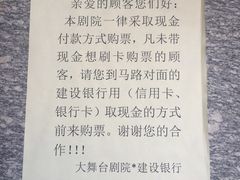 亲爱的顾客您们好：
本剧院一律采取现金
付款方式购票，凡未带
现金想刷卡购票的顾
客，请您到马路对面的
建设银行用（信用卡、
银行卡）取现金的方式
前来购票。谢谢您的合
作!!!
大舞台剧院*建设银行